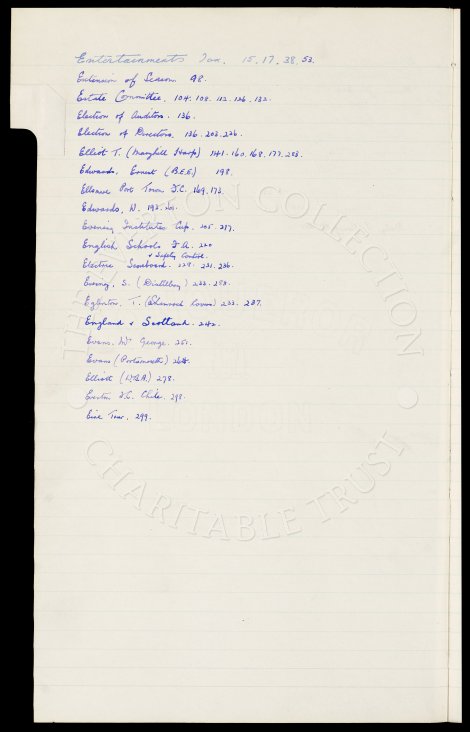 Entertainments Tax. 15, 17, 38, 53.
Extension of Season 98.
Estate Committee. 104. 108. 112. 126. 132.
Election of Auditors. 136.
Election of Directors. 136. 203. 226.
Elliot T. (Maryhill Harp) 141. 160. 168. 177. 203.
Edwards, Ernest (BEE) 198.
Ellesmere Port Town F.C. 169. 173.
Edwards, D. 193. 201.
Evening Institutes Cup. 205. 217.
English Schools F.A. 220
& Safety Control.
Electric Scoreboard. 228. 231. 236.
S. (Distillery) 233. 253.
Eglinton, T. (Shamrock Rovers) 233. 237.
England v Scotland. 242.
Evans. Mr George. 251.
Evans (Portsmouth)
Elliott (W.B.A.) 278.
Everton F.C. Chile. 293.
Eire Tour. 299.
THE EVERTON COLLECTION
CHARITABLE TRUST